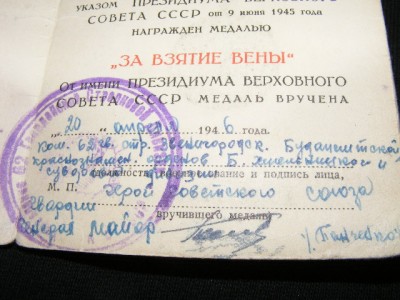 УКАЗОМ ПРЕЗИДИУМА ВЕРХОВНОГО
СОВЕТА СССР от 9 июня 1945 года
НАГРАЖДЕН МЕДАЛЬЮ
„ЗА ВЗЯТИЕ ВЕНЫ"
ОТ ИМЕНИ ПРЕЗИДИУМА ВЕРХОВНОГО
СОВЕТА СССР МЕДАЛЬ ВРУЧЕНА
„20" апреля 1946 года.
Ком. 62 гв. стр. Звенигородск. Будапештской
краснознамен. орденов Б. Хмельницкого и
Суворова дивизии
(должность, воинское звание и подпись лица,
М. П. Герой Советского Союза
вручившего медаль)
гвардии
генерал майор